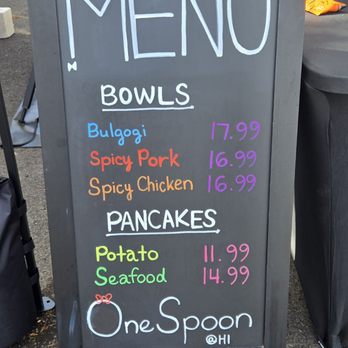 MENU
BOWLS
Bulgogi 17.99
Spicy Pork 16.99
Spicy Chicken 16.99
PANCAKES
Potato 11.99
Seafood 14.99
One Spoon
@HI